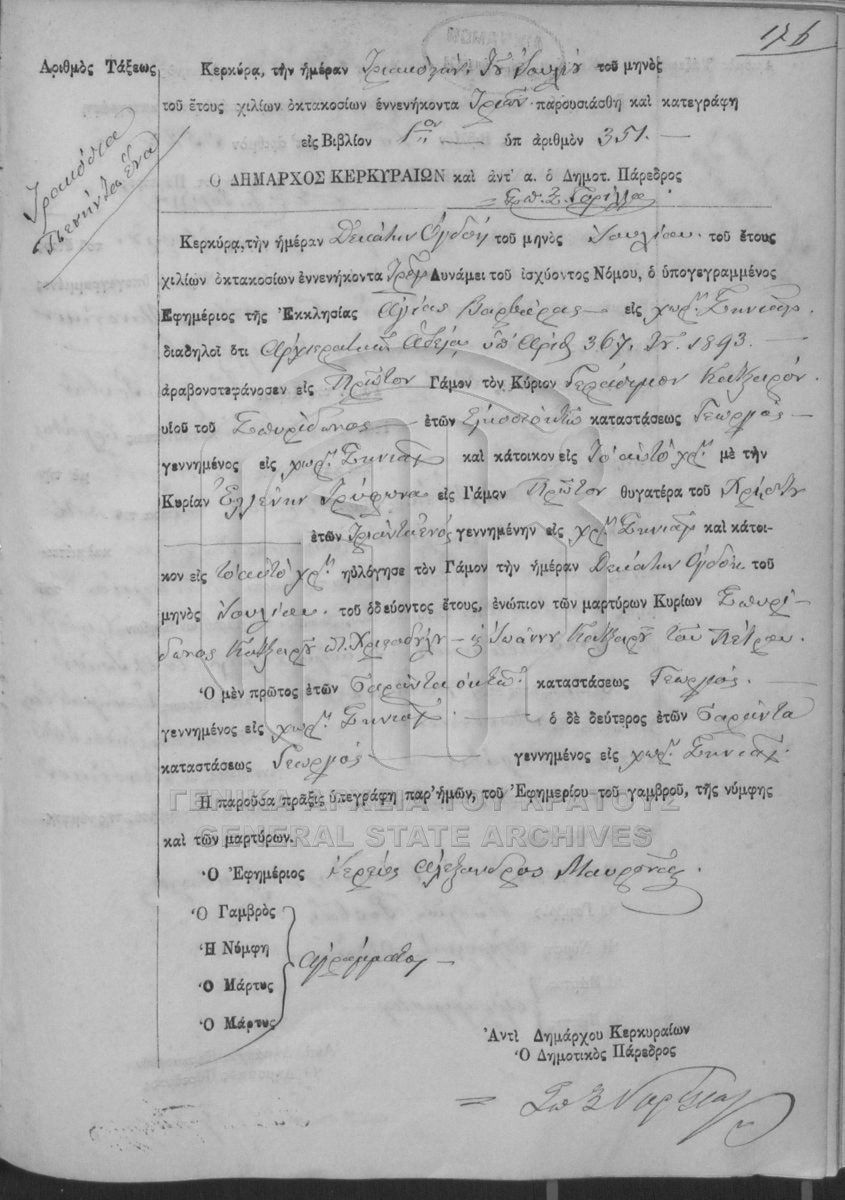 176
Ἀριθμὸς Τάξεως
Τριακόσια
Πενῆντα ἕνα
Κερκύρα, τὴν ἡμέραν Τριακοστὴν Ἰουλίου τοῦ μηνὸς
τοῦ ἔτους χιλίων ὀκτακοσίων ἐννενήκοντα Τριῶν παρουσιάσθη καὶ κατεγράφη
εἰς Βιβλίον 1ον ὑπ ἀριθμὸν 351.
Ο ΔΗΜΑΡΧΟΣ ΚΕΡΚΥΡΑΙΩΝ καὶ ἀντ' α. ὁ Δημοτ. Πάρεδρος
Κερκύρᾳ, τὴν ἡμέραν Δεκάτην Ὀγδόη τοῦ μηνὸς Ἰουλίου τοῦ ἔτους
χιλίων ὀκτακοσίων ἐννενήκοντα Τρία Δυνάμει τοῦ ἰσχύοντος Νόμου, ὁ ὑπογεγραμμένος
Ἐφημέριος τῆς Ἐκκλησίας Ἁγίας Βαρβάρας εἰς χωρ. Σινιάδ.
διαδηλοῖ ὅτι Ἀρχιερατικὴ Ἀδείᾳ ὑπ' Ἀριθ 367. 1893.
ἀραβονστεφάνοσεν εἰς Πρῶτον Γάμον τὸν Κύριον Γεράσιμον Κάτζαρόν
υἱοῦ τοῦ Σπυρίδωνος ἐτῶν Εἰκοσιοκτὼ καταστάσεως Γεωργὸς
γεννημένος εἰς χωρ. Σινιάδ. καὶ κάτοικον εἰς Τὸ αὐτὸ χρ. μὲ τὴν
Κυρίαν Ἑλλένην Τρύφωνα εἰς Γάμον Πρῶτον θυγατέρα τοῦ Χρίστου
ἐτῶν Τριάντα ἑνὸς γεννημένην εἰς χρ. Σινιάδ. καὶ κάτοι-
κον εἰς τὸ αὐτὸ χρ. ηὐλόγησε τὸν Γάμον τὴν ἡμέραν Δεκάτην Ὀγδόη τοῦ
μηνὸς Ἰουλίου τοῦ ὁδεύοντος ἔτους, ἐνώπιον τῶν μαρτύρων Κυρίων Σπυρί-
δωνος Κάτζαρου Χριστοδούλου Ἰωάννη Κάτζαρου τοῦ Πέτρου.
Ὁ μὲν πρῶτος ἐτῶν Σαράντα ὀκτὼ καταστάσεως Γεωργὸς
γεννημένος εἰς χωρ. Σινιάδ. ὁ δὲ δεύτερος ἐτῶν Σαράντα
καταστάσεως Γεωργὸς γεννημένος εἰς χωρ. Σινιάδ.
Ἡ παροῦσα πρᾶξις ὑπεγράφη παρ' ἡμῶν, τοῦ Ἐφημερίου τοῦ γαμβροῦ, τῆς νύμφης
καὶ τῶν μαρτύρων.
ΓΕΝΙΚΑ ΑΡΧΕΙΑ ΤΟΥ ΚΡΑΤΟΥΣ
GENERAL STATE ARCHIVES
Ὁ Ἐφημέριος Ἱερεὺς Ἀλέξανδρος
Ὁ Γαμβρὸς
Ἡ Νύμφη
Ὁ Μάρτυς
Ὁ Μάρτυς
Ἀγράμματοι
Ἀντὶ Δημάρχου Κερκυραίων
Ὁ Δημοτικὸς Πάρεδρος